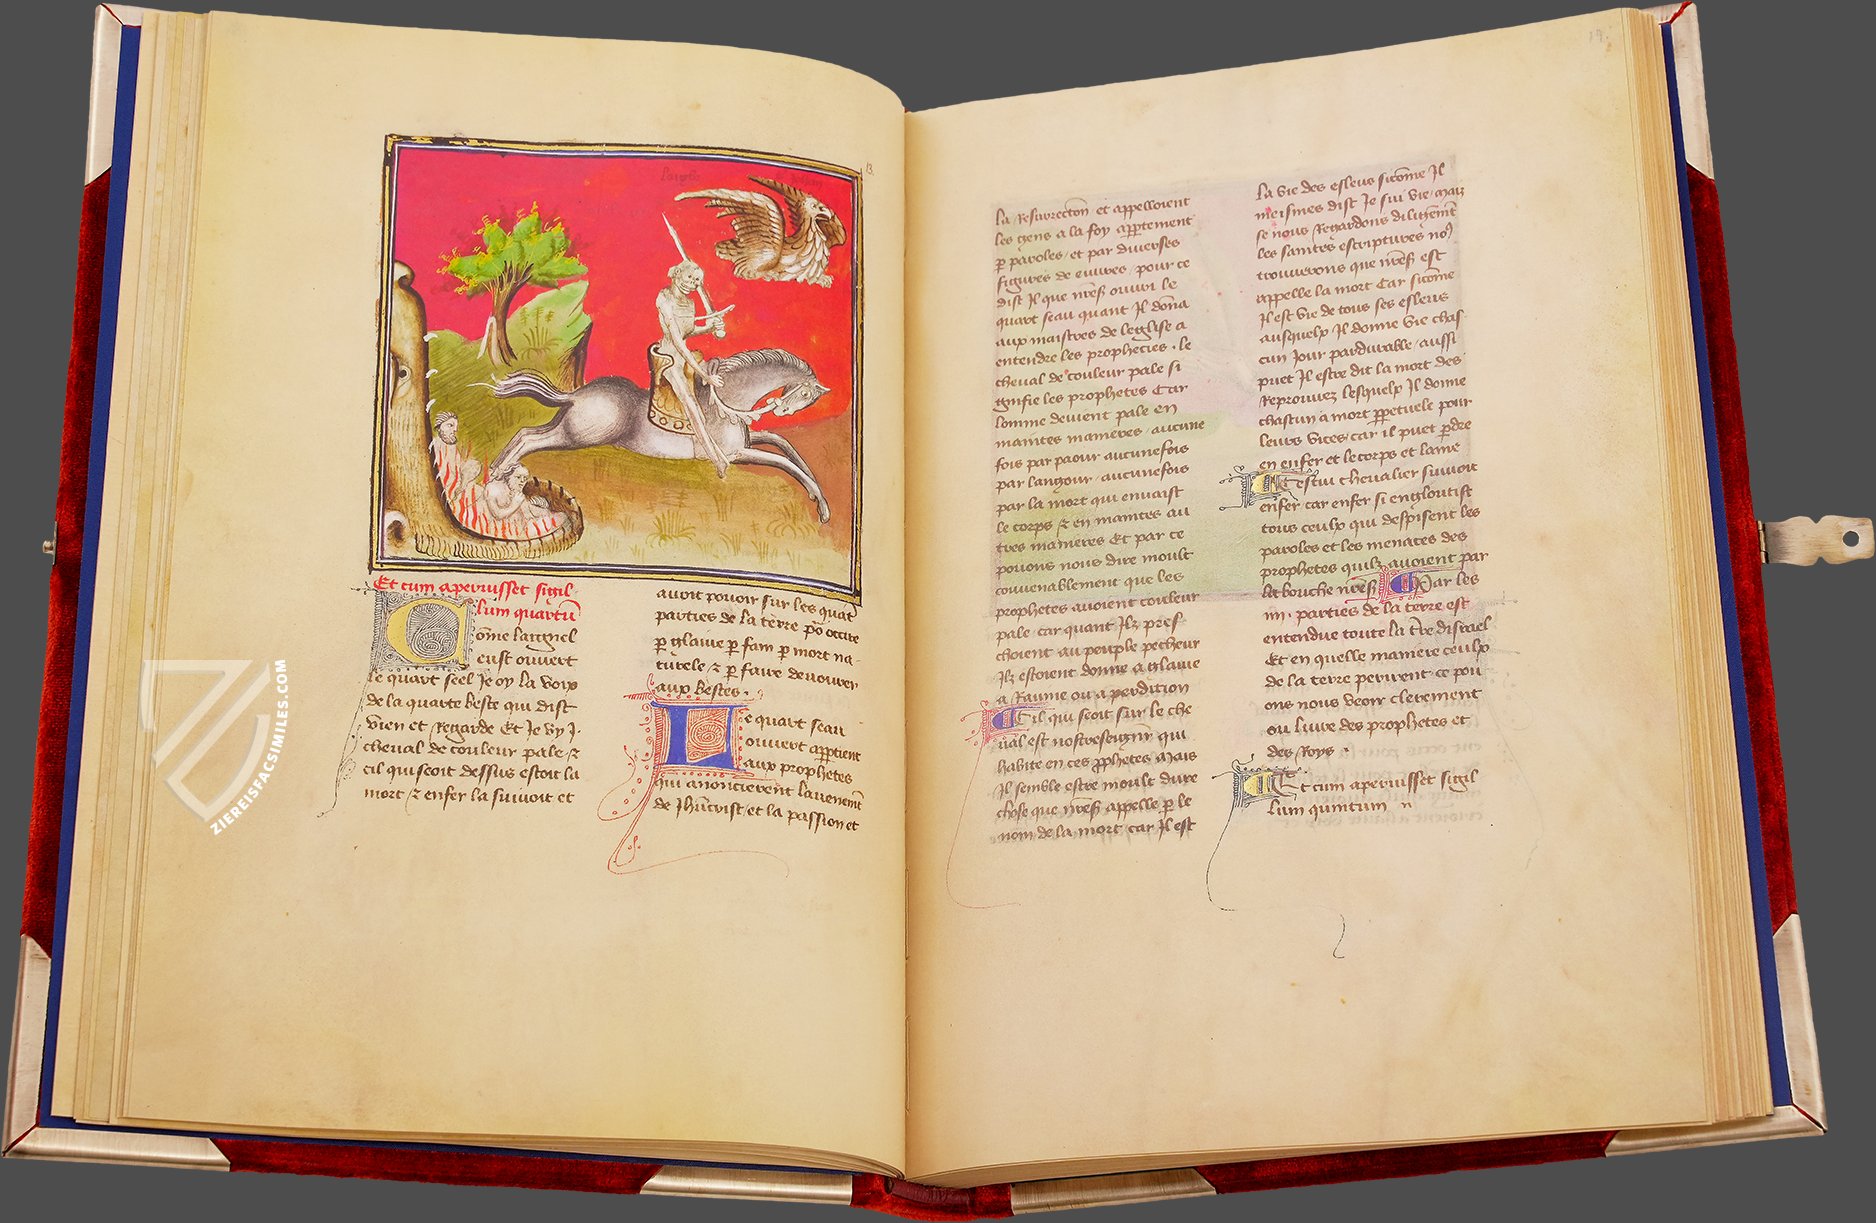 13.
Et cum aperuisset sigil
lum quartũ
Cõme laignel
eust ouvert
le quart seel Je oy la voix
de la quarte beste qui dist
vien et Regarde Et Je vy j.
cheval de couleur pale. ⁊
cil qui seoit dessus estoit la
mort ⁊ enfer la suivoit et
avoit povoir sur les quat
parties de la terre po occire
p glaive p fam p mort na-
turele ⁊ p faire devourer
aux bestes.
Le quart seau
ouvert apptient
aux prophetes
qui anoncierent lavenemt
de Jhucrist, et la passion et
ZIEREISFACSIMILES.COM
14.
la Resurrection et appelloient
les gens a la foy appertement
p paroles, et par diverses
figures de euvres, pour ce
dist Il que ouvri le
quart seau quant Il dona
aux maistres de leglise a
entendre les prophecies. le
cheval de couleur pale si
gnifie les prophetes Car
lomme devient pale en
maintes manieres, aucune
fois par paour aucunefois
par langour, aucunefois
par la mort qui envaist
le corps ⁊ en maintes au
tres manieres Et par ce
povons nous dire moult
convenablement que les
prophetes avoient couleur
pale, car quant Ilz pres-
choient au peuple pecheur
Ilz estoient donne a glaive
a Raime ou a perdition
Cil qui seoit sur le che
val est nostreseignr qui
habite en ces pphetes Mais
Il semble estre moult dure
chose que appelle p le
nom de la mort, car Il est
la vie des esleus sicome Il
meismes dist Je sui vie, maiz
se nous Regardons diligemt
les saintes escriptures no9
trouverons que est
appelle la mort Car sicõme
Il est vie de tous ses esleus
ausquelx Il donne vie chas-
cun Jour pardurable, aussi
puet Il estre dit la mort des
Reprouvez lesquelx Il donne
chascun a mort ppetuele pour
leurs vices, car il puet pdre
en enfer et le corps et lame
Cestui chevalier suivoit
enfer car enfer si engloutist
tous ceulx qui despisent les
paroles et les menaces des
prophetes quilz avoient par
la bouche Par les
iiii. parties de la terre est
entendue toute la tre disrael
Et en quelle maniere ceulx
de la terre perirent, ce pou
ons nous veoir clerement
ou livre des prophetes et
des Roys.
Et cum aperuisset sigil
lum quintum